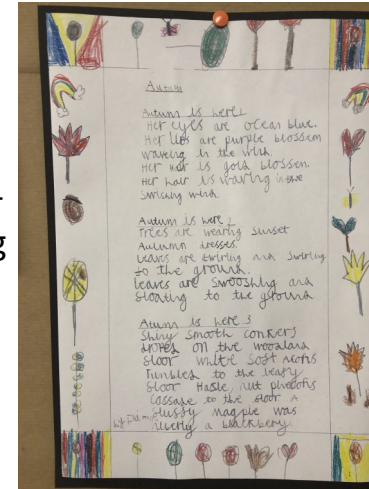 Autum
Autum is here 1
Her eyes are ocean blue.
Her lips are purple blossom
waveing in the wind.
Her hair is gold blossen.
Her hair is waring in the
swiscing wind.
Autum is here 2
Trees are wearing sunset
Autumn dresses.
Leaves are twirling and swirling
to the ground.
leaves are swooshing and
floating to the ground
Atumn is here 3
Shiny smooth conkers
droped on the woodland
floor white soft
Tumbled to the leafy
floor nut
to the floor A
flussy magpie was
a blackbery
by
g